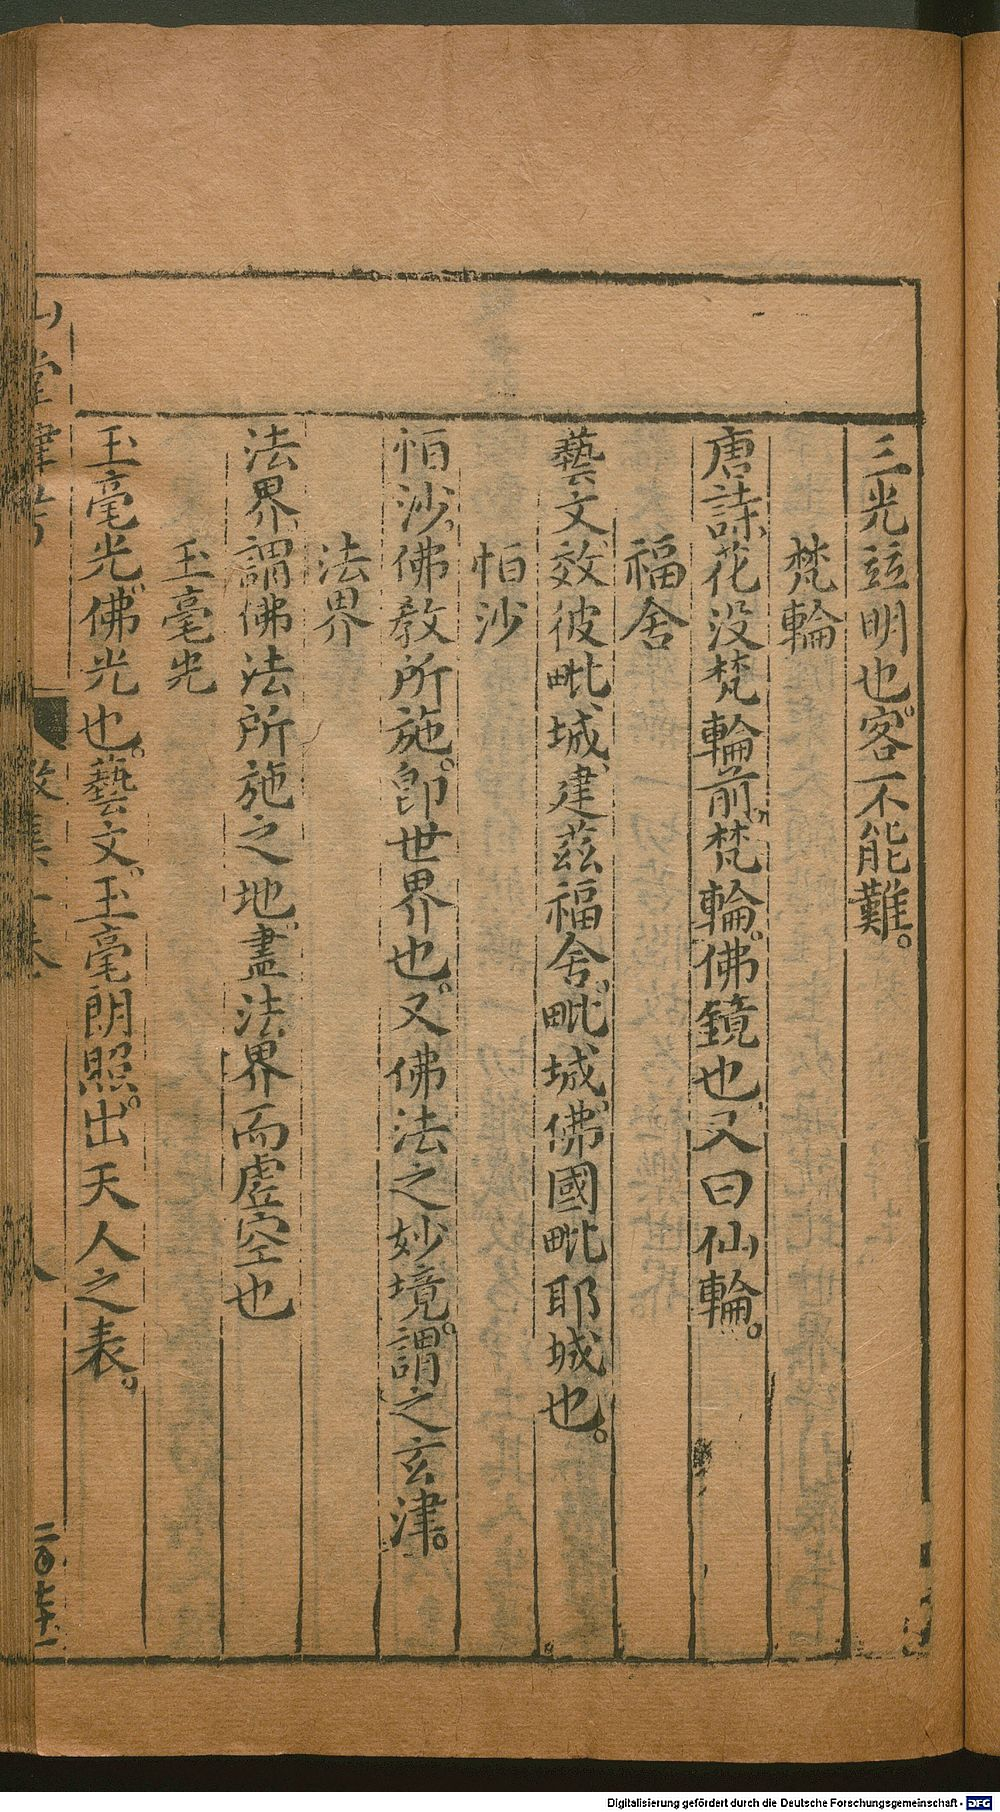 三光竝明也客不能難。
梵輪
唐詩、花没梵輪前、梵輪。佛鏡也、又曰仙輪。
福舍
藝文效彼毗城、建茲福舍、毗城、佛國毗耶城也。
怕沙
怕沙、佛教所施。即世界也。又佛法之妙境。謂之玄津。
法界
法界、謂佛法所施之地、盡法界而虛空也
玉毫光
玉毫光、佛光也。藝文、玉毫朗照。出天人之表。
山堂肆考
Digitalisierung gefördert durch die Deutsche Forschungsgemeinschaft - DFG